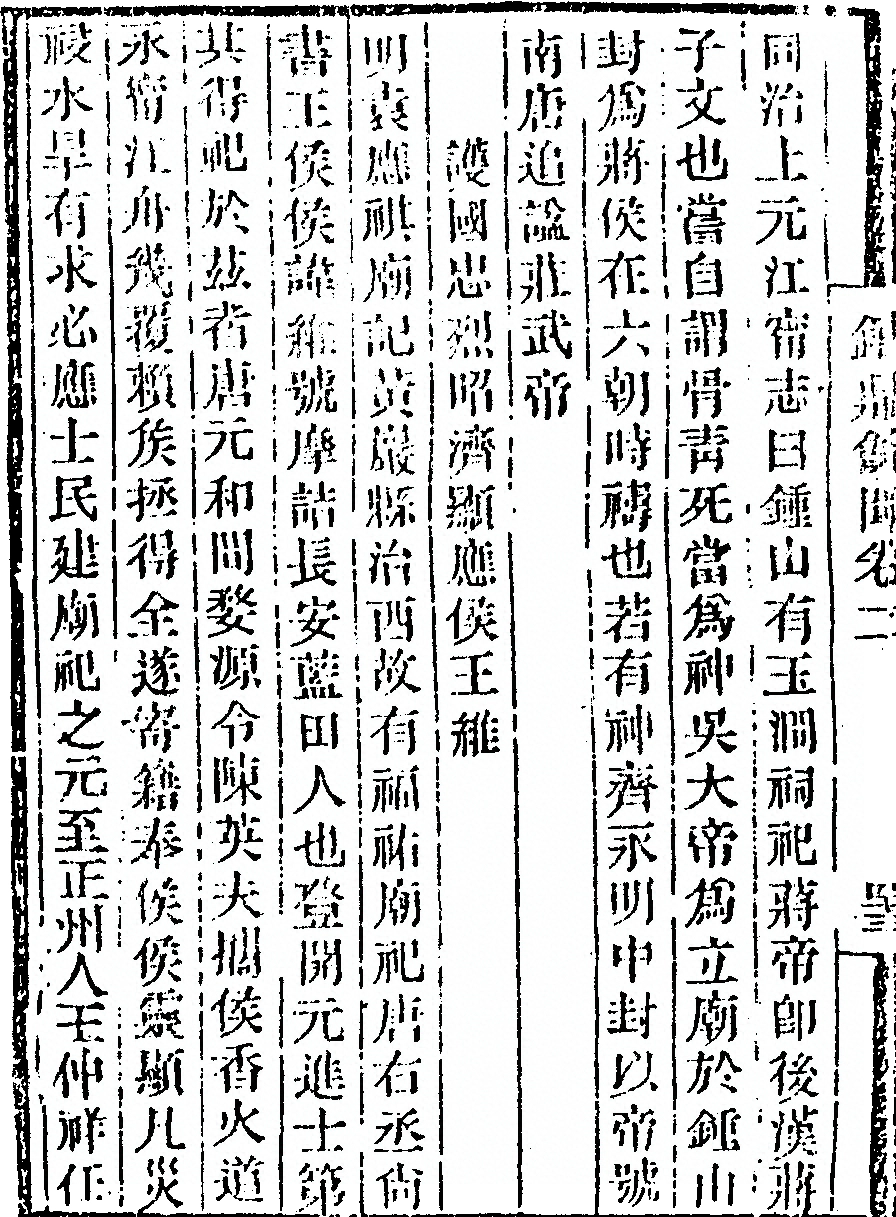 同治上元江甯志曰鍾山有玉澗祠祀蔣帝卽後漢蔣
子文也嘗自謂骨青死當爲神吳大帝爲立廟於鍾山
封爲蔣侯在六朝時禱也若有神齊永明中封以帝號
南唐追諡莊武帝
護國忠烈昭濟顯應侯王維
明袁應祺廟記黃巖縣治西故有福祐廟祀唐右丞尙
書王侯侯諱維號摩詰長安藍田人也登開元進士第
其得祀於茲者唐元和間婺源令陳英夫攜侯香火道
永甯江舟幾覆賴侯拯得全遂寄籍奉侯侯靈顯凡災
祲水旱有求必應士民建廟祀之元至正州人王仲祥任
卷二